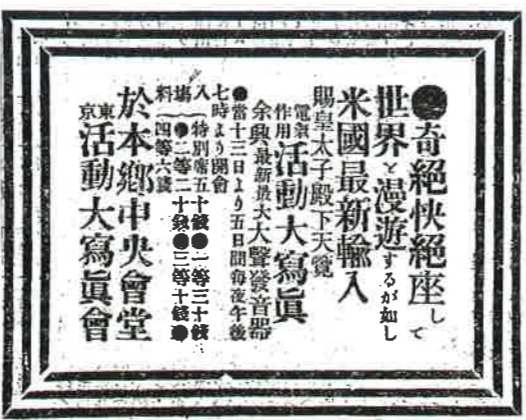 ●奇絕快絕座して
世界を漫遊するが如し
米國最新輸入
賜皇太子殿下天覽
電氣作用活動大寫眞
余興最新最大大聲發音器
●當十三日より五日間每夜午後
七時より開會
入塲料
特別席五十錢●一等三十錢
●二等二十錢●三等十錢●
四等六錢
於本鄕中央會堂
東京活動大寫眞會